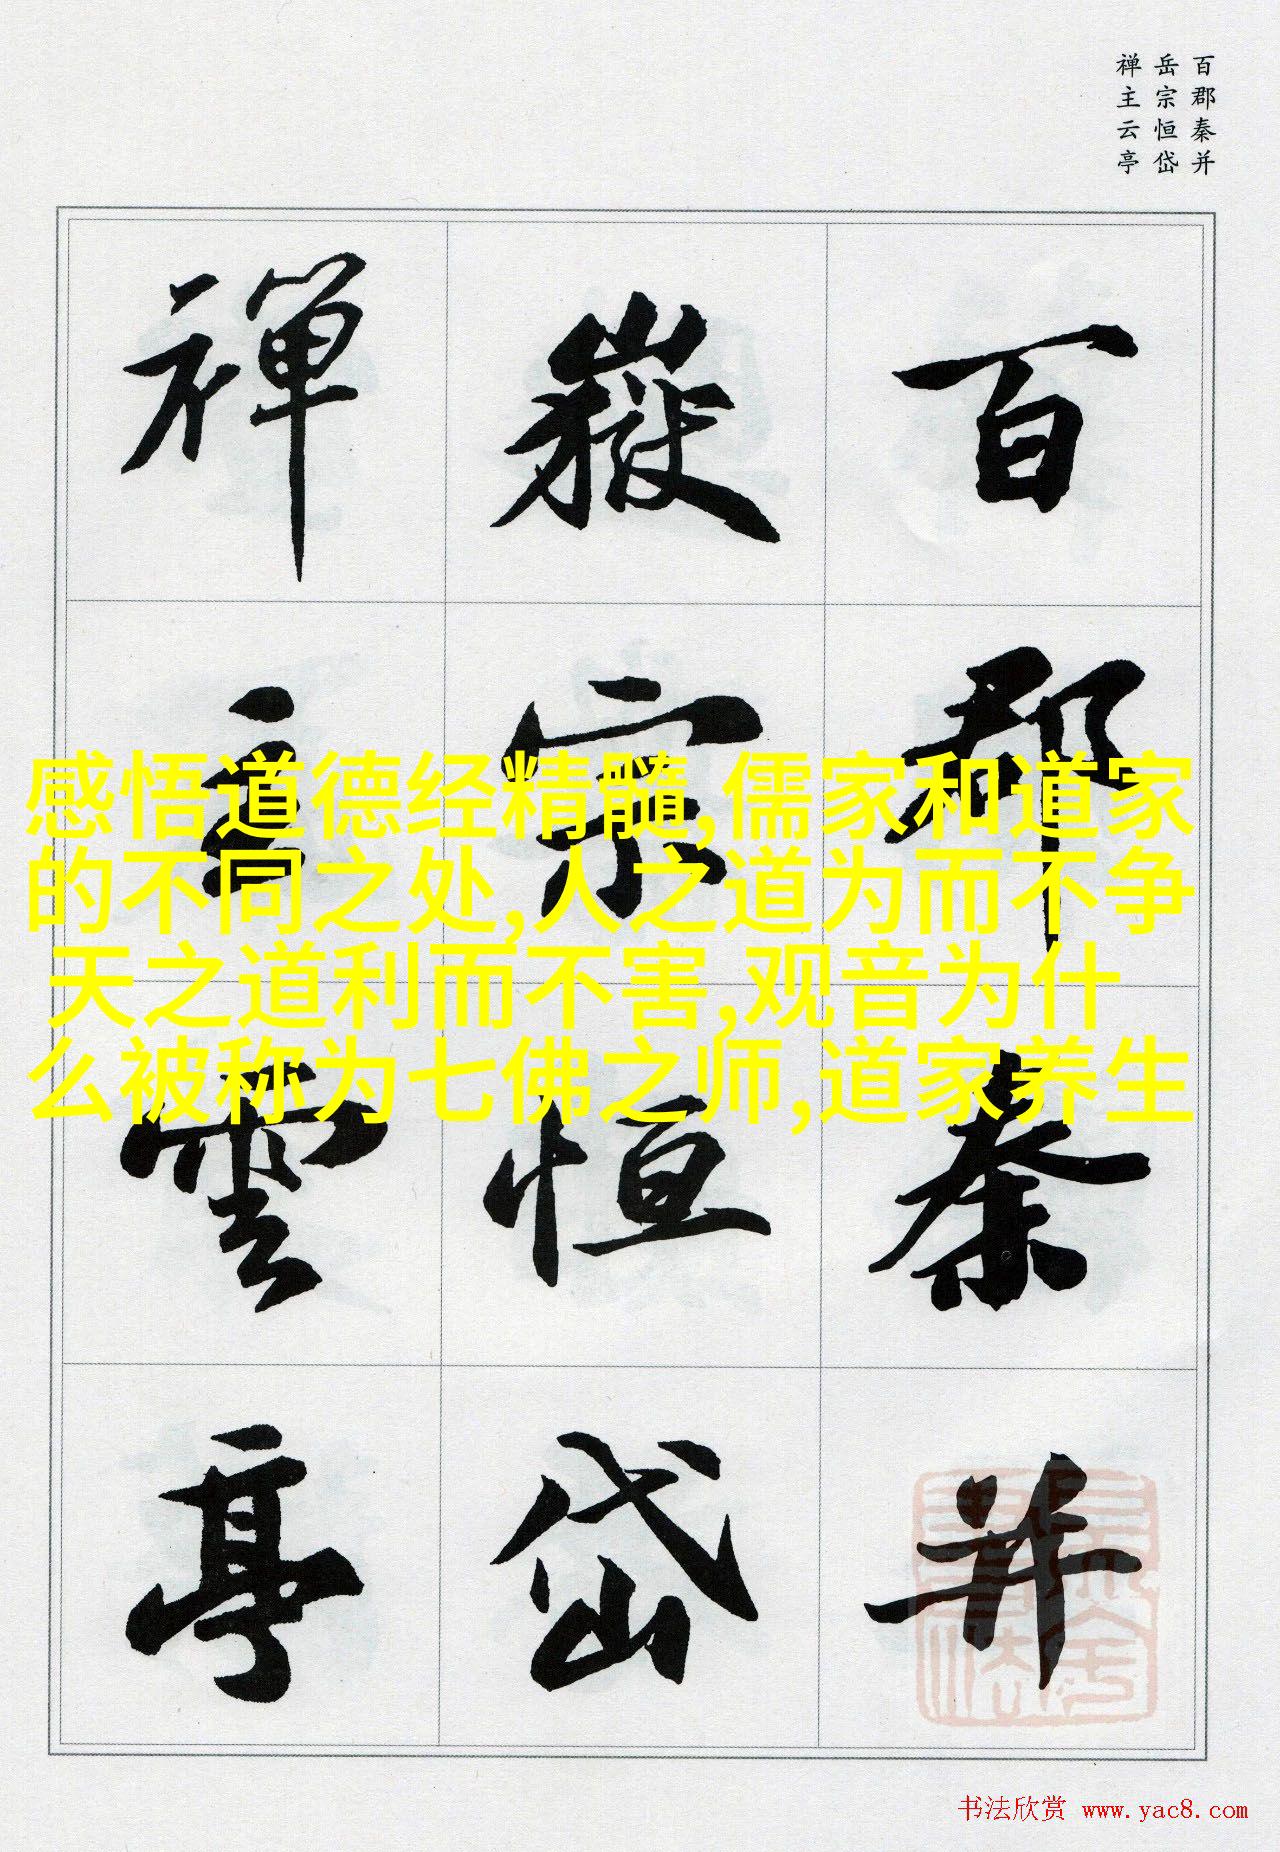 百郡秦并
岳宗恒岱
禅主云亭
百郡秦并
嶽宗恒岱
禪主雲亭
感悟道德经精髓,儒家和道家
的不同之处,人之道为而不争
天之道利而不害,观音为什
么被称为七佛之师,道家养生
书法欣赏 www.yac8.com